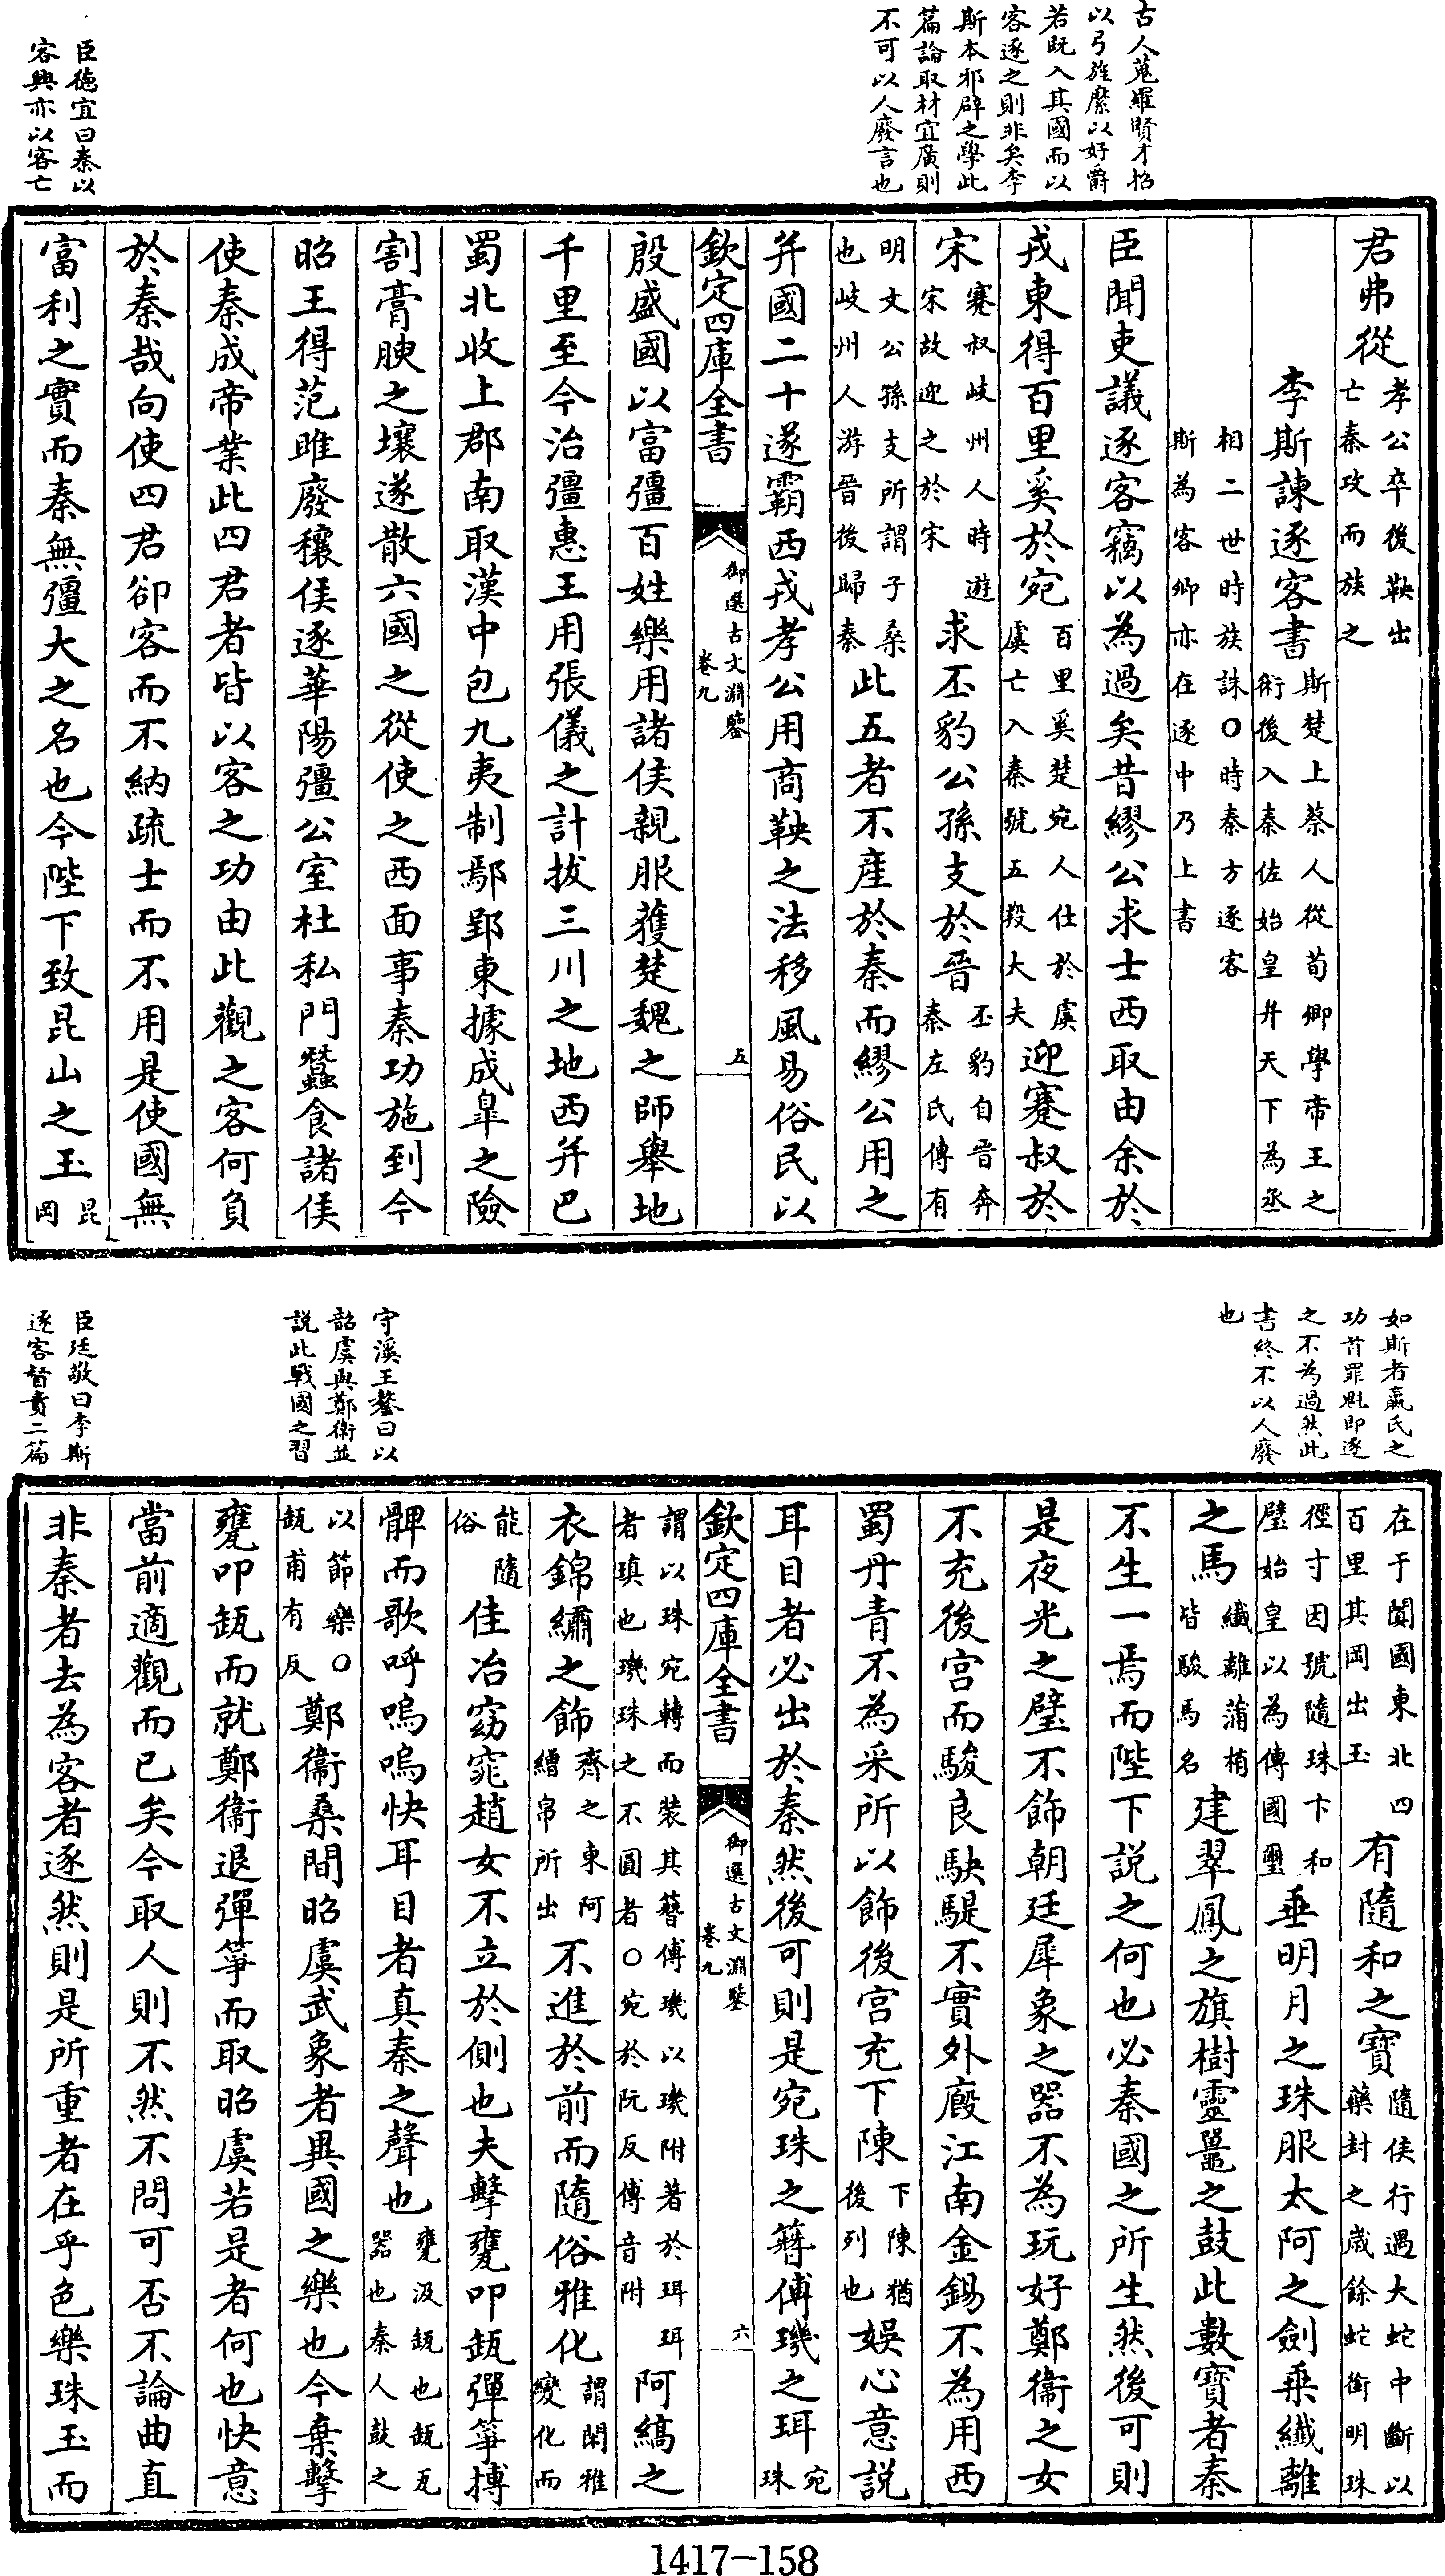 古人蒐羅賢才招
以弓旌縻以好爵
若既入其國而以
客逐之則非矣李
斯本邪辟之學此
篇論取材宜廣則
不可以人廢言也
臣德宜曰秦以
客興亦以客亡
君弗從孝公卒後鞅出亡秦攻而族之
李斯諫逐客書斯楚上蔡人從荀卿學帝王之術後入秦佐始皇并天下為丞
相二世時族誅○時秦方逐客斯為客卿亦在逐中乃上書
臣聞吏議逐客竊以為過矣昔繆公求士西取由余於
戎東得百里奚於宛百里奚楚宛人仕於虞虞亡入秦號五羖大夫迎蹇叔於
宋蹇叔岐州人時遊宋故迎之於宋求丕豹公孫支於晉丕豹自晉奔秦左氏傳有
明文公孫支所謂子桑也岐州人游晉後歸秦此五者不産於秦而繆公用之
并國二十遂霸西戎孝公用商鞅之法移風易俗民以
欽定四庫全書 御選古文淵鑒 卷九 五
殷盛國以富彊百姓樂用諸侯親服獲楚魏之師舉地
千里至今治彊惠王用張儀之計拔三川之地西并巴
蜀北收上郡南取漢中包九夷制鄢郢東據成臯之險
割膏腴之壤遂散六國之從使之西面事秦功施到今
昭王得范雎廢穰侯逐華陽彊公室杜私門蠶食諸侯
使秦成帝業此四君者皆以客之功由此觀之客何負
於秦哉向使四君卻客而不納疏士而不用是使國無
富利之實而秦無彊大之名也今陛下致昆山之玉昆岡
如斯者嬴氏之
功首罪魁即逐
之不為過然此
書終不以人廢
也
守溪王鏊曰以
韶虞與鄭衛並
説此戰國之習
臣廷敬曰李斯
逐客督責二篇
在于闐國東北四百里其岡出玉有隨和之寶隨侯行遇大蛇中斷以藥封之歲餘蛇銜明珠
徑寸因號隨珠卞和璧始皇以為傳國璽垂明月之珠服太阿之劍乘纖離
之馬纖離蒲梢皆駿馬名建翠鳳之旗樹靈鼉之鼓此數寶者秦
不生一焉而陛下説之何也必秦國之所生然後可則
是夜光之璧不飾朝廷犀象之器不為玩好鄭衛之女
不充後宫而駿良駃騠不實外廄江南金錫不為用西
蜀丹青不為采所以飾後宫充下陳下陳猶後列也娛心意説
耳目者必出於秦然後可則是宛珠之簪傅璣之珥宛珠
謂以珠宛轉而裝其簪傅璣以璣附著於珥珥者瑱也璣珠之不圓者○宛於阮反傅音附阿縞之
衣錦繡之飾齊之東阿繒帛所出不進於前而隨俗雅化謂閑雅變化而
能隨俗佳冶窈窕趙女不立於側也夫擊甕叩缻彈箏搏
髀而歌呼嗚嗚快耳目者真秦之聲也甕汲缻也缻瓦器也秦人鼓之
以節樂○缻甫有反鄭衛桑間昭虞武象者異國之樂也今棄擊
甕叩缻而就鄭衛退彈箏而取昭虞若是者何也快意
當前適觀而已矣今取人則不然不問可否不論曲直
非秦者去為客者逐然則是所重者在乎色樂珠玉而
欽定四庫全書 御選古文淵鑒 卷九 六
1417-158